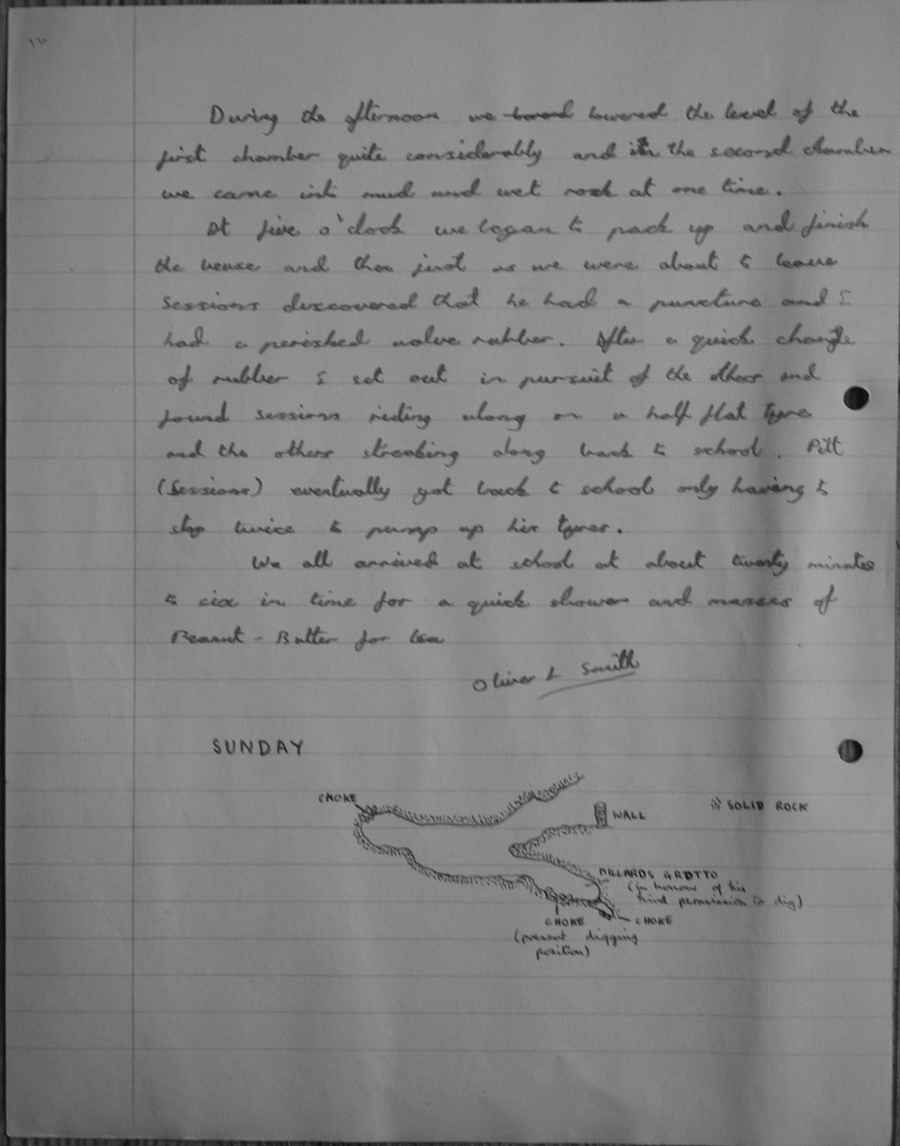 During the afternoon we lowered the level of the
first chamber quite considerably and in the second chamber
we came into mud and wet rock at one time.
At five o'clock we began to pack up and finish
the and then just as we were about to leave
Sessions discovered that he had a puncture and I
had a perished valve rubber. After a quick change
of rubber I set out in pursuit of the others and
found sessions riding along on a half flat tyre
and the others streaking along back to school. Pitt
(Sessions) eventually got back to school only having to
stop twice to pump up his tyres.
We all arrived at school at about twenty minutes
to six in time for a quick shower and masses of
Peanut-Butter for tea
Oliver L Smith
SUNDAY
CHOKE
WALL
SOLID ROCK
GROTTO
(in honour of his
kind permission to dig)
CHOKE
CHOKE
(present digging
position)